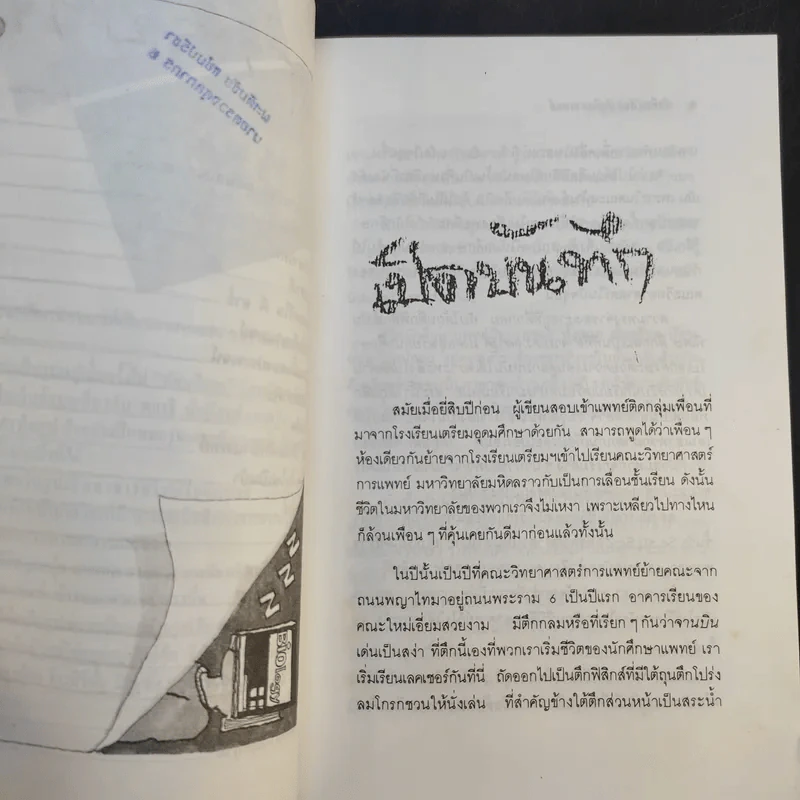 เปิดบันทึก
สมัยเมื่อยี่สิบปีก่อน ผู้เขียนสอบเข้าแพทย์ติดกลุ่มเพื่อนที่
มาจากโรงเรียนเตรียมอุดมศึกษาด้วยกัน สามารถพูดได้ว่าเพื่อน ๆ
ห้องเดียวกันย้ายจากโรงเรียนเตรียมฯเข้าไปเรียนคณะวิทยาศาสตร์
การแพทย์ มหาวิทยาลัยมหิดลราวกับเป็นการเลื่อนชั้นเรียน ดังนั้น
ชีวิตในมหาวิทยาลัยของพวกเราจึงไม่เหงา เพราะเหลียวไปทางไหน
ก็ล้วนเพื่อน ๆ ที่คุ้นเคยกันดีมาก่อนแล้วทั้งนั้น
ในปีนั้นเป็นปีที่คณะวิทยาศาสตร์การแพทย์ย้ายคณะจาก
ถนนพญาไทมาอยู่ถนนพระราม 6 เป็นปีแรก อาคารเรียนของ
คณะใหม่เอี่ยมสวยงาม มีตึกกลมหรือที่เรียก ๆ กันว่าจานบิน
เด่นเป็นสง่า ที่ตึกนี้เองที่พวกเราเริ่มชีวิตของนักศึกษาแพทย์ เรา
เริ่มเรียนเลคเชอร์กันที่นี่ ถัดออกไปเป็นตึกฟิสิกส์ที่มีใต้ถุนตึกโปร่ง
ลมโกรกชวนให้นั่งเล่น ที่สำคัญข้างใต้ตึกส่วนหน้าเป็นสระน้ำ
Z Z Z